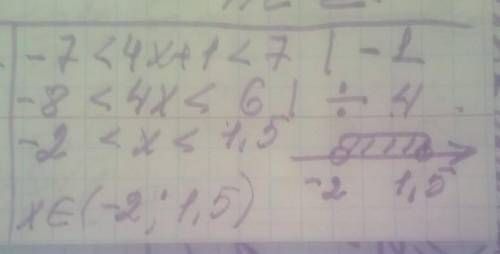 -7 < 4x+1 < 7 | -1
-8 < 4x < 6 | ÷ 4
-2 < x < 1,5
-2 1,5
x∈(-2; 1,5)